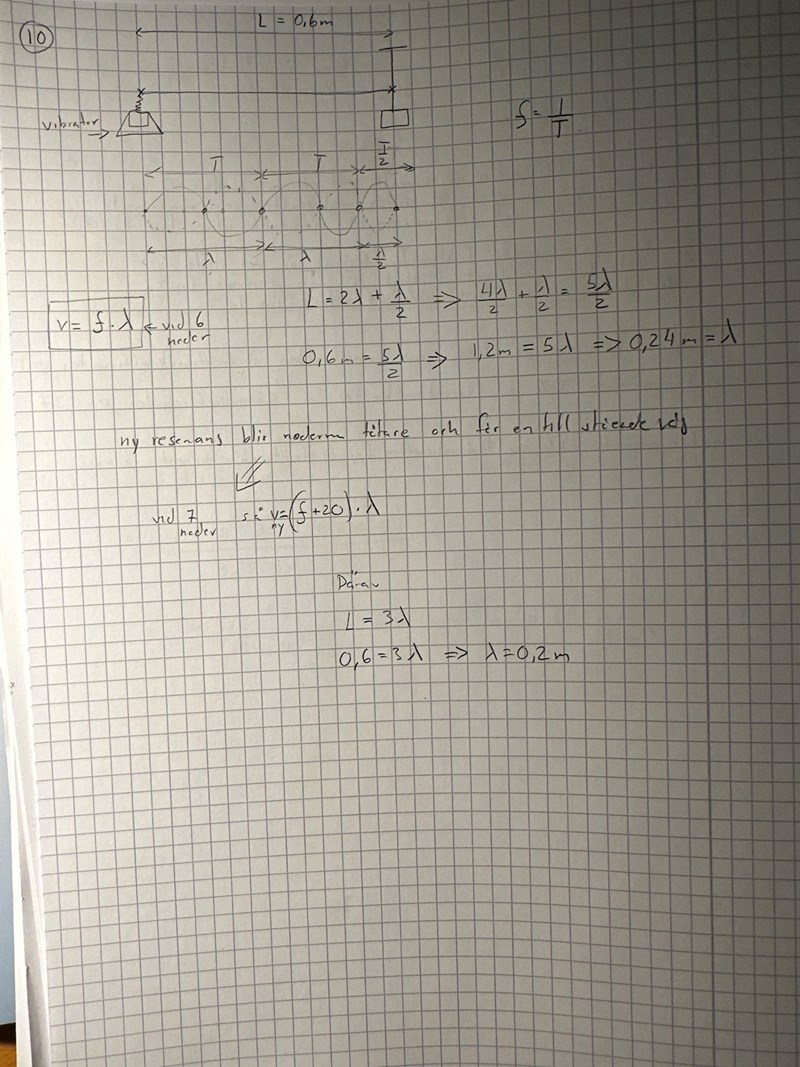 10
L = 0,6m
vibrator
f = 1/T
T T T/2
λ λ λ/2
L = 2λ + λ/2 => 4λ/2 + λ/2 = 5λ/2
v = f · λ ← vid 6 noder
0,6m = 5λ/2 => 1,2m = 5λ => 0,24m = λ
ny resonans blir noderna tätare och får en till stående våg
vid 7 noder så v ny = (f+20) · λ
Därav
L = 3λ
0,6 = 3λ => λ = 0,2m